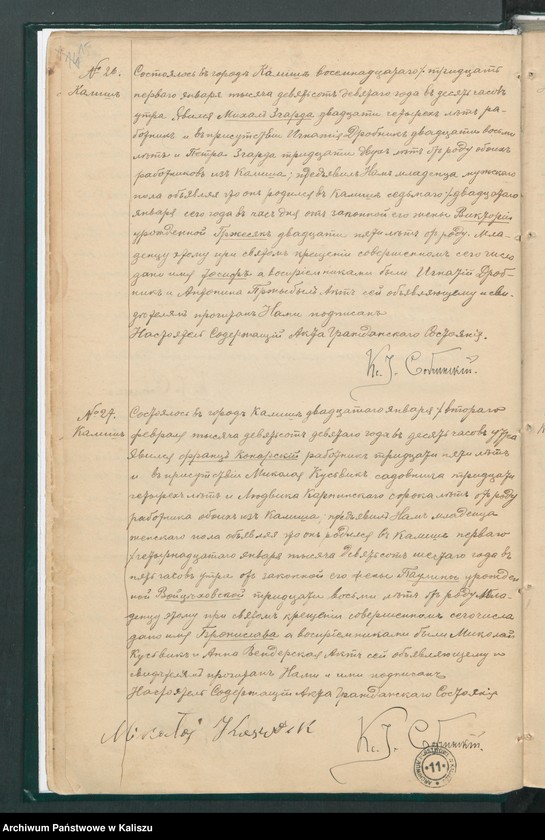 № 26.
Калишъ
Состоялось въ города Калишъ восемнадцатаго/ тридцать
перваго января тысяча девятьсотъ девятаго года въ десять часовъ
утра. Явился Михалъ Згарда двадцати четырехъ лѣтъ ра-
ботникъ и въ присутствіи Игнатія Дробникъ двадцати восьми
лѣтъ и Петра Згарда тридцати двухъ лѣтъ отъ роду обоихъ
работниковъ изъ Калиша; предъявилъ Намъ младенца мужскаго
пола объявляя что онъ родился въ Калишѣ седьмаго/двадцатаго
января сего года въ часъ дня отъ законной его жены Викторіи
урожденной двадцати пяти лѣтъ отъ роду. Мла-
денцу этому при святомъ крещеніи совершенномъ сего числа
дано имя Іосифъ а воспріемниками были Игнатій Дроб-
никъ и Антонина Актъ сей объявляющему и сви-
дѣтелямъ прочитанъ Нами подписанъ
Настоятель Содержащій Акта Гражданскаго Состоянія.
Кс. І.
№ 27.
Калишъ
Состоялось въ городѣ Калишъ двадцатаго января/втораго
февраля тысяча девятьсотъ девятаго года въ десять часовъ утра
Явился Францъ Кокарскій работникъ тридцати пяти лѣтъ
и въ присутствіи Миколая Кусевикъ садовника тридцати
четырехъ лѣтъ и Людвика Карпинскаго сорока лѣтъ отъ роду
работника обоихъ изъ Калиша; предъявилъ Намъ младенца
женскаго пола объявляя что онъ родился въ Калишѣ перваго
/четырнадцатаго января тысяча девятьсотъ шестаго года въ
пять часовъ утра отъ законной его жены Паулины урожден-
ной Войцѣховской тридцати восьми лѣтъ отъ роду. Мла-
денцу этому при святомъ крещеніи совершенномъ сего числа
дано имя Брониславa а воспріемниками были Миколай
Кусевикъ и Анна Вендерская Актъ сей объявляющему и
свидѣтелямъ прочитанъ Нами и ими подписанъ
Настоятель Содержащій Акта Гражданскаго Состоянія
Mikołaj
Кс. І.
11
Archiwum Państwowe w Kaliszu